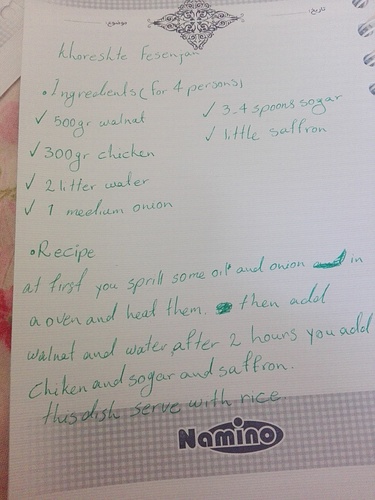 موضوع:
تاریخ:
Khoreshte Fesenjan
• Ingredients (for 4 persons)
✓ 500gr walnat
✓ 3-4 spoons sogar
✓ little saffron
✓ 300gr chicken
✓ 2 litter water
✓ 1 medium onion
• Recipe
at first you sprill some oil and onion in
a oven and heat them. then add
walnat and water, after 2 hours you add
chiken and sogar and saffron.
this dish serve with rice.
Namino